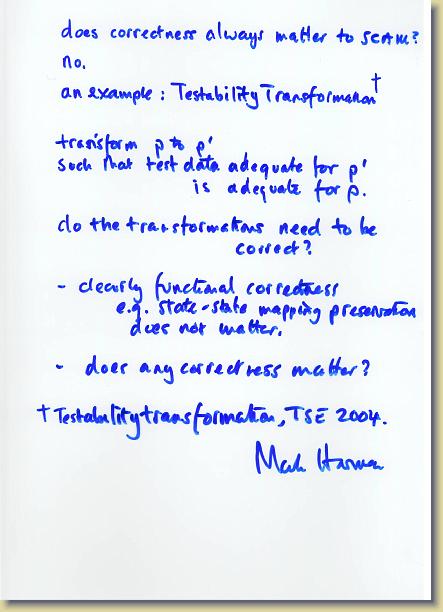 does correctness always matter to SCAM?
no.
an example: Testability Transformation†
transform p to p'
such that test data adequate for p'
is adequate for p.
do the transformations need to be
correct?
- clearly functional correctness
e.g. state-state mapping preservation
does not matter.
- does any correctness matter?
† Testability transformation, TSE 2004.
Mark Harman